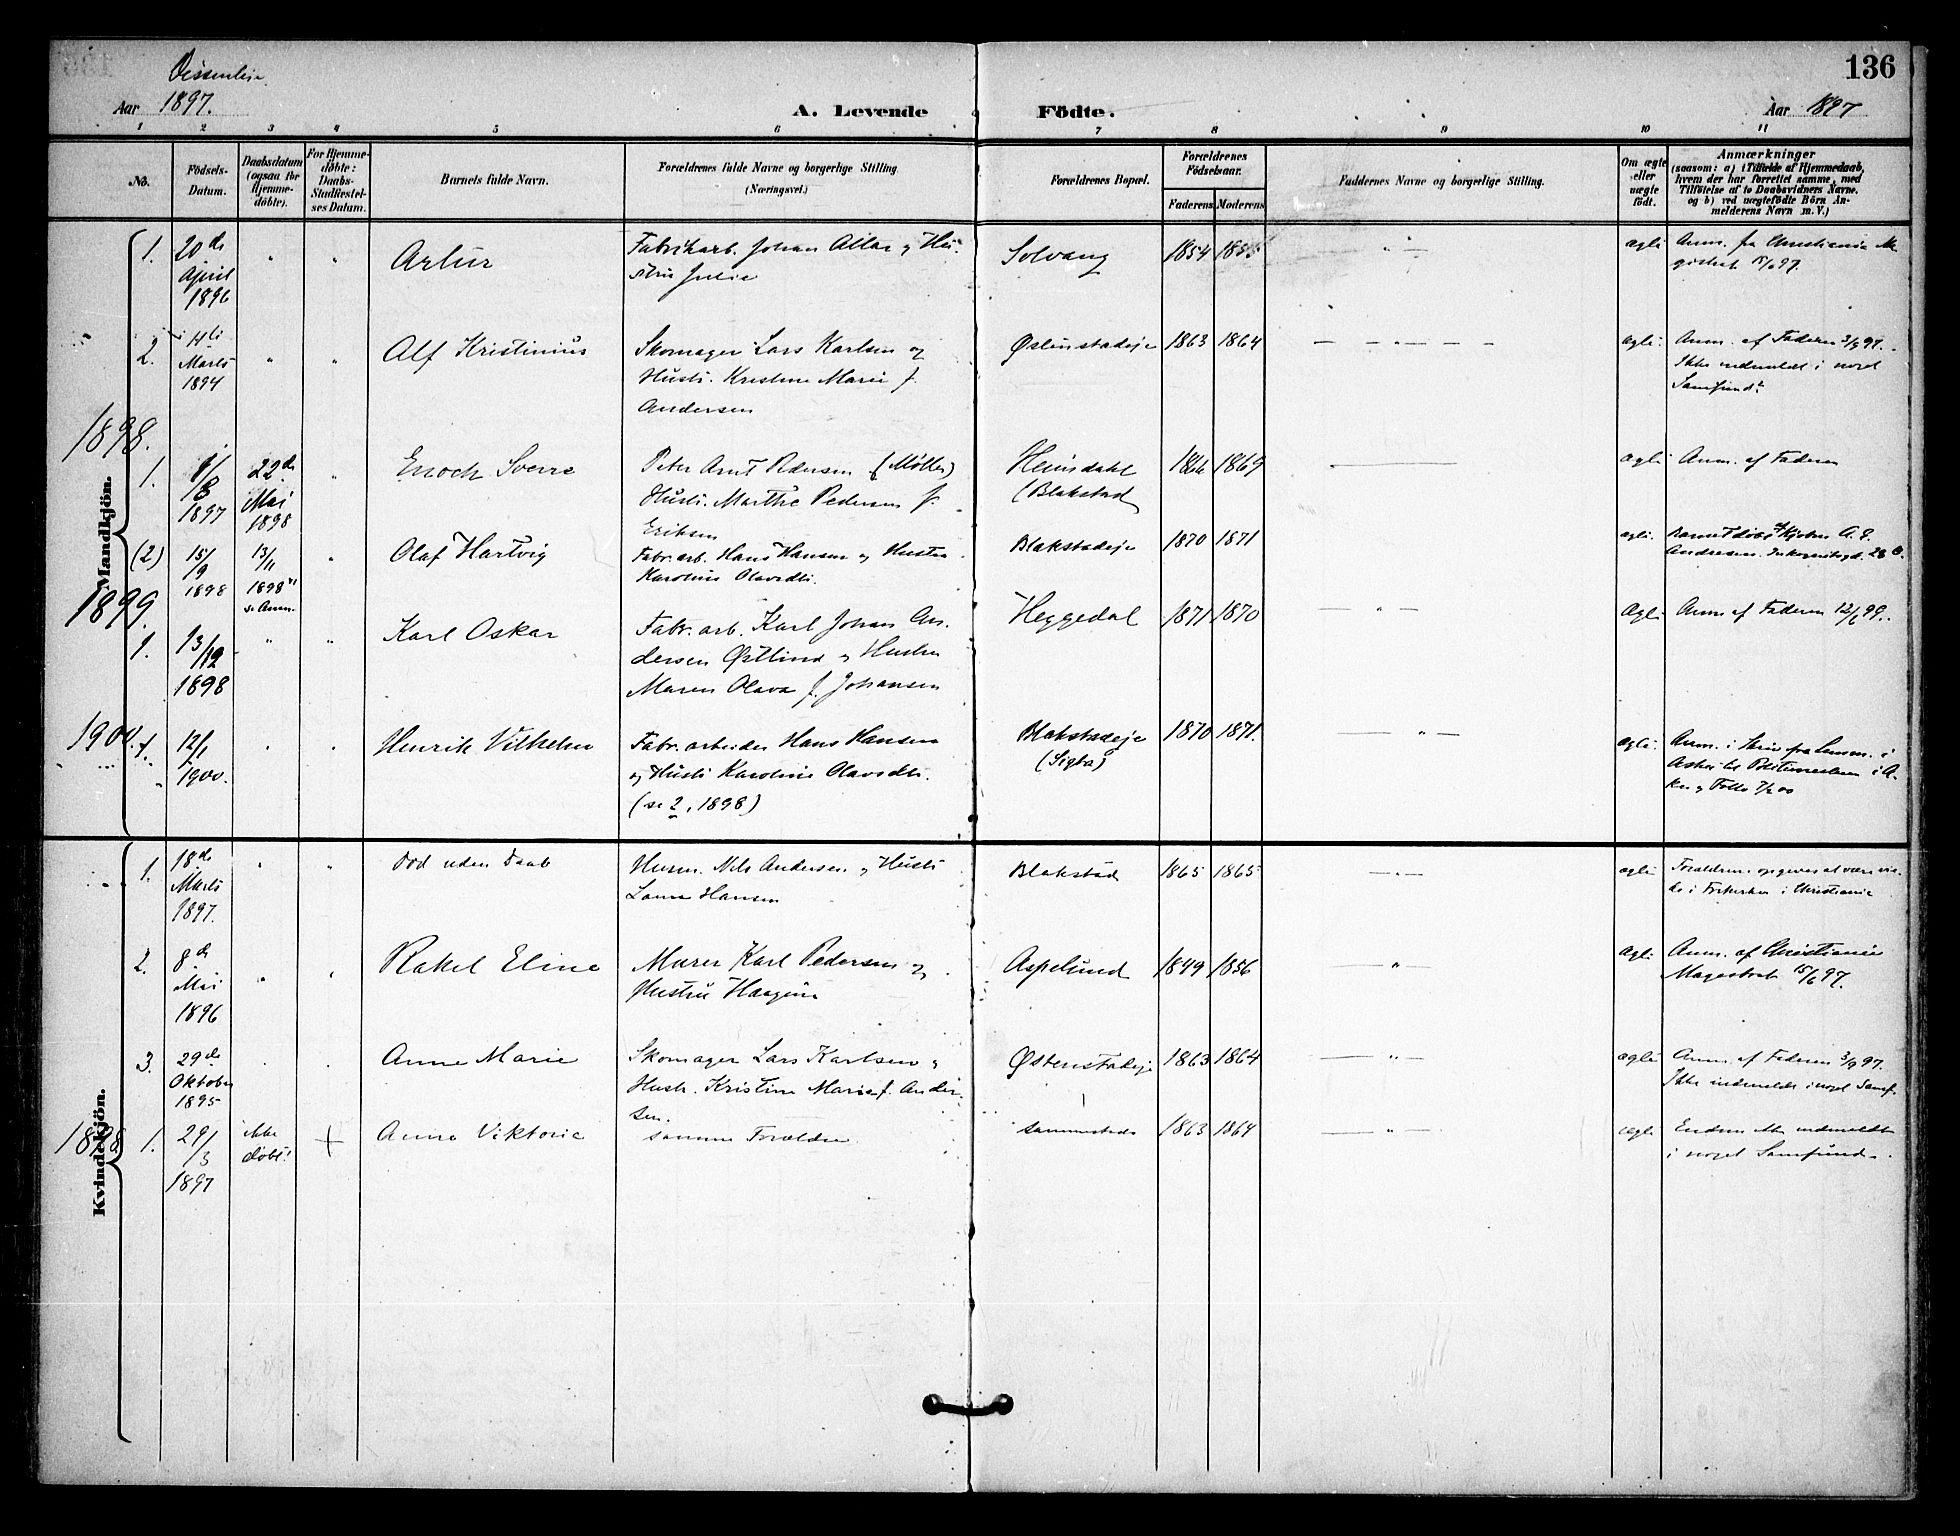 136
Aar 1897.
A. Levende Födte.
Aar 1897
1 2 3 4 5 6 7 8 9 10 11
No.
Födsels-Datum.
Daabsdatum (ogsaa for Hjemme-döbte).
For Hjemme-döbte: Daabs-Stadfæstel-ses Datum.
Barnets fulde Navn.
Forældrenes fulde Navne og borgerlige Stilling (Næringsvei.)
Forældrenes Bopæl.
Forældrenes Födselsaar.
Faderens Moderens
Faddernes Navne og borgerlige Stilling.
Om ægte eller uægte födt.
Anmærkninger
(saasom: a) i Tilfælde af Hjemmedaab,
hvem der har forrettet samme, med
Tilföielse af to Daabsvidners Navne.
og b) ved uægtefödte Börn An-
melderens Navn m. V.)
Mandkjön.
1. 20de April 1896 " " Artur
Fabrikarb. Johan og Hu-
stru Julie
Solvang 1854 1855 " ægte
Anm. fra Christiania Ma-
gistrat /6 97.
2. 4de Marts 1894 " " Alf Kristinius
Skomager Lars Karlsen og
Hustr. Kristine Marie f.
Andersen
1863 1864 ægte
Anm. af Faderen 3/9 97.
Ikke indmeldt i noget
Samfund
1898.
1. 1/8 1897 22de Mai 1898 " Enoch Sverre
Peter Arnt Pedersen (Møller)
Hustr. Marthe Pedersen f.
Eriksen
Heimsdahl
(Blakstad
1866 1869 ægte Anm. af Faderen
(2) 15/9 1898 13/11 1898 se Anm. " Olaf Hartvig
Fabr. arb. Hans Hansen og Hustru
Karoline Olavsdtr.
Blakstadeje 1870 1871 ægte
Barnet døbt af A. E.
Andresen.
1899.
1. 13/12 1898 " " Karl Oskar
Fabr. arb. Karl Johan An-
dersen Østlind og Hustru
Maren Olava f. Johansen
Heggedal 1871 1870 " ægte
Anm. af Faderen 12/6 99.
1900.
1. 12/1 1900. " " Henrik Vilhelm
Fabr. arbeider Hans Hansen
og Hustr. Karoline Olavsdtr.
(se 2, 1898)
Blakstadeje
1870 1871. " ægte
Anm. i Skriv. fra Lensm. i
Asker til Politimesteren i A-
ker og Follo 7/2 00
Kvindekjön.
1. 18de Marts 1897. " " Død uden Daab
Husm. Nils Andersen og Hustr.
Hansen
Blakstad 1865 1865 " ægte
Forældrene opgives at være vie-
de i Frikirken i Christiania
2. 8de Mai 1896 " " Rakel Eline
Murer Karl Pedersen og
Hustru Haagine
Aspelund 1849 1856 " ægte
Anm. af Christiania
Magistrat 15/6 97.
3. 29de Oktober 1895 Anne Marie
Skomager Lars Karlsen og
Hustr. Kristine Marie f. Ander-
sen.
Østenstadeje 1863 1864 " ægte
Anm. af Faderen 3/9 97.
Ikke indmeldt i noget Samf.
1898
1. 29/3 1897 ikke døbt! + Anna Viktoria
samme Forældre
sammesteds 1863 1864 " ægte
Endnu ikke indmeldt
i noget Samfund.